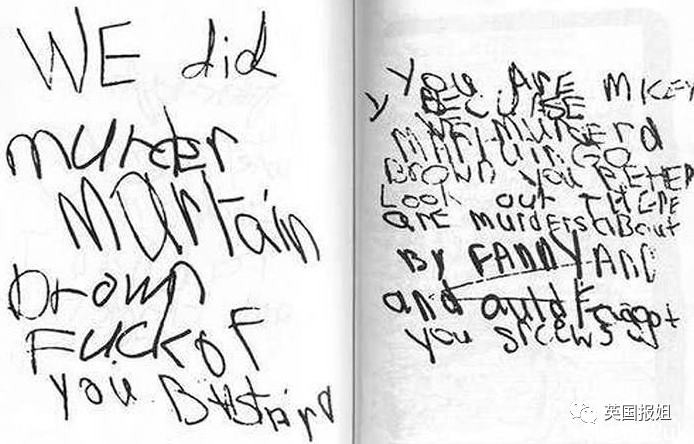 WE did
murder
martain
brown
Fuckof
you BAstard
You ArE mICEY
y BECUASE
WE murderd
MARTAIN GO
BROWN you BETTER
Look out THERE
are murders about
By FANNYAND
and auld Faggot
you srcews
英国报姐